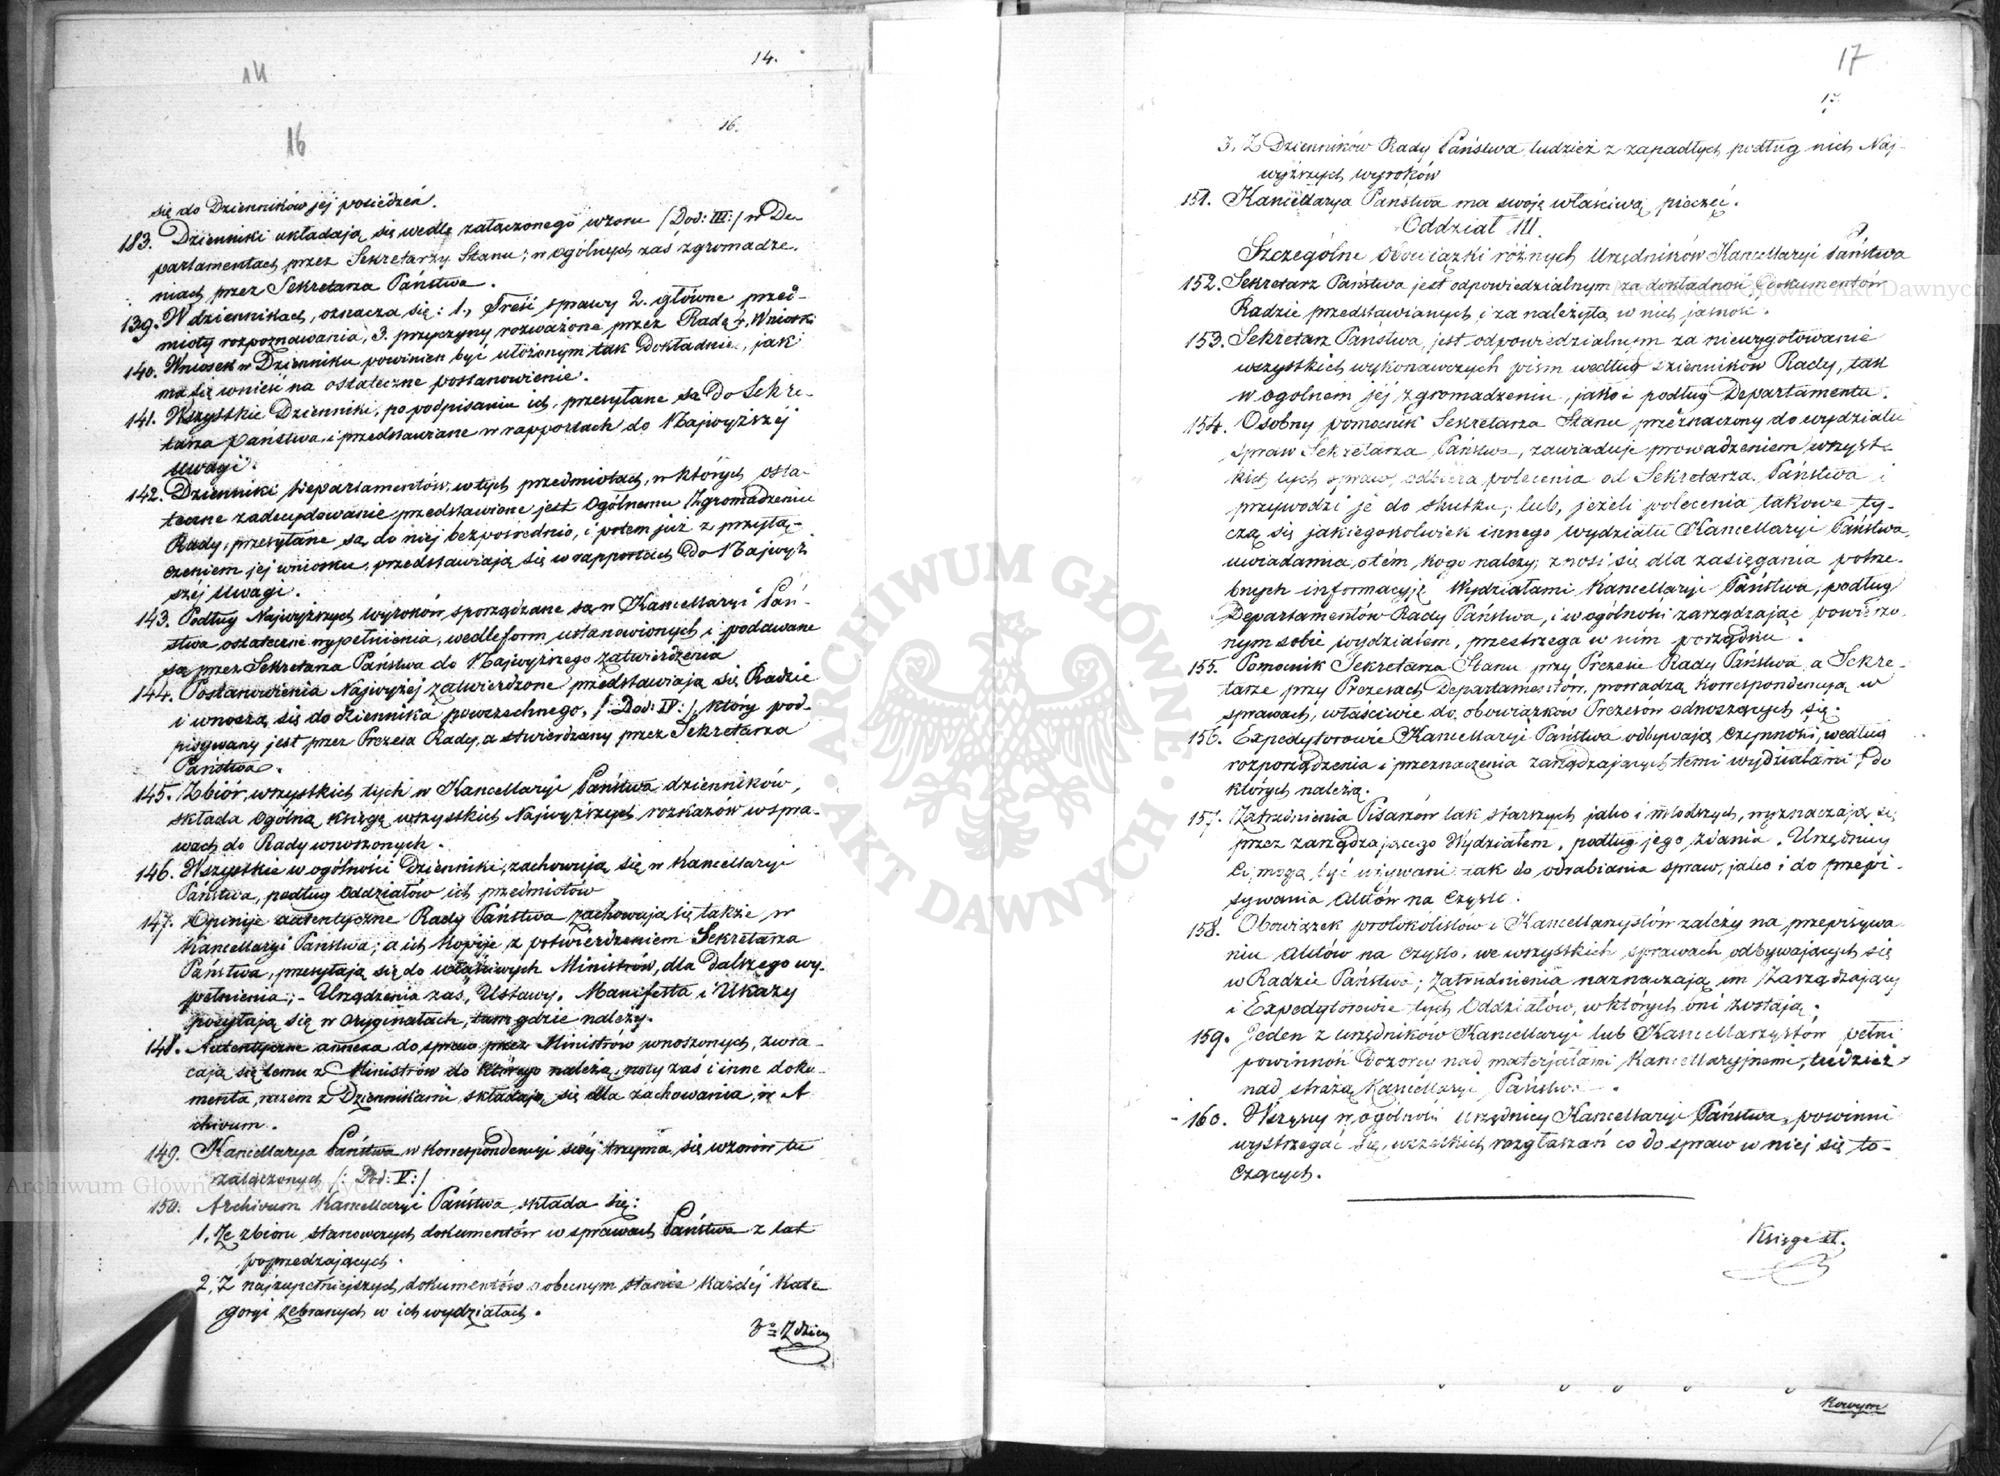 14.
14
16.
16
się do Dzienników jej posiedzeń.
183. Dzienniki układają się wedle załączonego wzoru /Dod: III:/ w De-
partamentach przez Sekretarzy Stanu; w ogólnych zaś zgromadze-
niach przez Sekretarza Państwa.
139. W dziennikach, oznacza się: 1., Treść sprawy 2. główne przed-
mioty rozpoznawania, 3. przyczyny rozważone przez Radę 4, Wnioski
140. Wniosek w Dzienniku powinien być ułożonym tak dokładnie, jak
ma się wnieść na ostateczne postanowienie.
141. Wszystkie Dzienniki, po podpisaniu ich, przesyłane są do Sekre-
tarza Państwa, i przedstawiane w rapportach do Najwyższéj
Uwagi.
142. Dzienniki Departamentów, w tych przedmiotach, w których osta-
teczne zadecydowanie przedstawione jest Ogólnemu Zgromadzeniu
Rady, przesyłane są do niej bezpośrednio, i potem już z przyłą-
czeniem jej wniosku, przedstawiają się w rapportach do Najwyż
széj Uwagi.
143. Podług Najwyższych wyroków sporządzane są w Kancellaryi Pań-
stwa ostateczne wypełnienia, wedle form ustanowionych i podawane
są przez Sekretarza Państwa do Najwyższego zatwierdzenia
144. Postanowienia Najwyżéj zatwierdzone przedstawiają się Radzie
i wnoszą się do dziennika powszechnego, /: Dod: IV:/, który pod-
pisywany jest przez Prezesa Rady, a stwierdzany przez Sekretarza
Państwa.
145. Zbiór, wszystkich tych w Kancellaryi Państwa dzienników,
składa Ogólną księgę wszystkich Najwyższych rozkazów w spra-
wach do Rady wnoszonych.
146. Wszystkie w ogólności Dzienniki, zachowują się w Kancellaryi
Państwa, podług Oddziałów ich przedmiotów
147. Opinije autentyczne Rady Państwa zachowują się także w
Kancellaryi Państwa; a ich kopije z potwierdzeniem Sekretarza
Państwa, przesyłają się do właściwych Ministrów, dla dalszego wy-
pełnienia; - Urządzenia zaś, Ustawy, Manifesta i Ukazy
posyłają się w oryginałach, tam gdzie należy.
148. Autentyczne annexa do spraw przez Ministrów wnoszonych, zwra-
cają się temu z Ministrów do którego należą, noty zaś i inne doku-
menta, razem z Dziennikami składają się dla zachowania, w A
chivum.
149. Kancellarya Państwa w korrespondencyi swéj trzyma się wzorów tu
załączonych /: Dod: V:/
150. Archivum Kancellaryi Państwa składa się:
1, Ze zbioru stanowczych dokumentów w sprawach Państwa z lat
poprzedzających.
2, Z najzupełniejszych dokumentów o obecnym stanie każdéj kate
goryi zebranych w ich wydziałach.
3 Z dzien
17
17.
3, Z Dzienników Rady Państwa tudzież z zapadłych podług nich Naj-
wyższych wyroków
151. Kancellarya Państwa ma swoję właściwą pieczęć.
Oddział III.
Szczególne Obowiązki różnych Urzędników Kancellaryi Państwa
152. Sekretarz Państwa jest odpowiedzialnym za dokładność dokumentów
Radzie przedstawianych i za należytą w nich jasność.
153. Sekretarz Państwa, jest odpowiedzialnym za niewygotowanie
wszystkich wykonawczych pism według dzienników Rady, tak
w ogolnem jéj zgromadzeniu, jako i podług Departamentu.
154. Osobny pomocnik Sekretarza Stanu przeznaczony do wydziału
spraw Sekretarza Państwa, zawiaduje prowadzeniem wszyst-
kich tych spraw, odbiera polecenia od Sekretarza Państwa i
przywodzi je do skutku; lub, jeżeli polecenia takowe ty-
czą się jakiegokolwiek innego wydziału Kancellaryi Państwa,
uwiadamia o tém, kogo należy; znosi się dla zasięgania potrze-
bnych informacyję Wydziałami Kancellaryi Państwa, podług
Departamentów Rady Państwa, i w ogólności zarządzając powierzo-
nym sobie wydziałem, przestrzega w nim porządku.
155. Pomocnik Sekretarza Stanu przy Prezesie Rady Państwa, a Sekre-
tarze przy Prezesach Departamentów, prowadzą korrespondencyją w
sprawach, właściwie do obowiązków Prezesów odnoszących się.
156. Expedytorowie Kancellaryi Państwa odbywają czynności, według
rozporządzenia i przeznaczenia zarządzających temi wydziałami, do
których należą.
157. Zatrudnienia Pisarzów tak starszych jako i młodszych, wyznaczają się
przez zarządzającego Wydziałem, podług jego zdania. Urzędnicy
Ci, mogą być używani tak do odrabiania spraw, jako i do przepi-
sywania Aktów na czysto.
158. Obowiązek protokólistów i Kancellarzystów zależy na przepisywa-
niu Aktów na czysto, we wszystkich sprawach odbywających się
w Radzie Państwa; Zatrudnienia naznaczają im Zarządzający
i Expedytorowie tych Oddziałów, w których oni zostają.
159. Jeden z urzędników Kancellaryi lub Kancellarzystów, pełni
powinność Dozorcy nad materjałami Kancellaryjnemi, tudzież
nad strażą Kancellaryi Państwa.
160. Wszyscy w ogólności Urzędnicy Kancellaryi Państwa, powinni
wystrzegać się, wszelkich rozgłaszań co do spraw w niej się to-
czących.
Księga st.
Nowym
ARCHIWUM GŁÓWNE AKT DAWNYCH
Archiwum Główne Akt Dawnych
Archiwum Główne Akt Dawnych